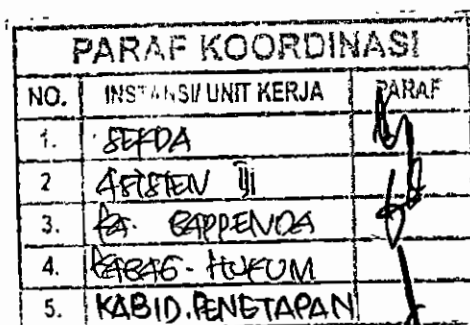 PARAF KOORDINASI
NO. INSTANSI/ UNIT KERJA PARAF
1. SEKDA
2 ASISTEN III
3. KA. BAPPENDA
4. KABAG - HUKUM
5. KABID. PENETAPAN